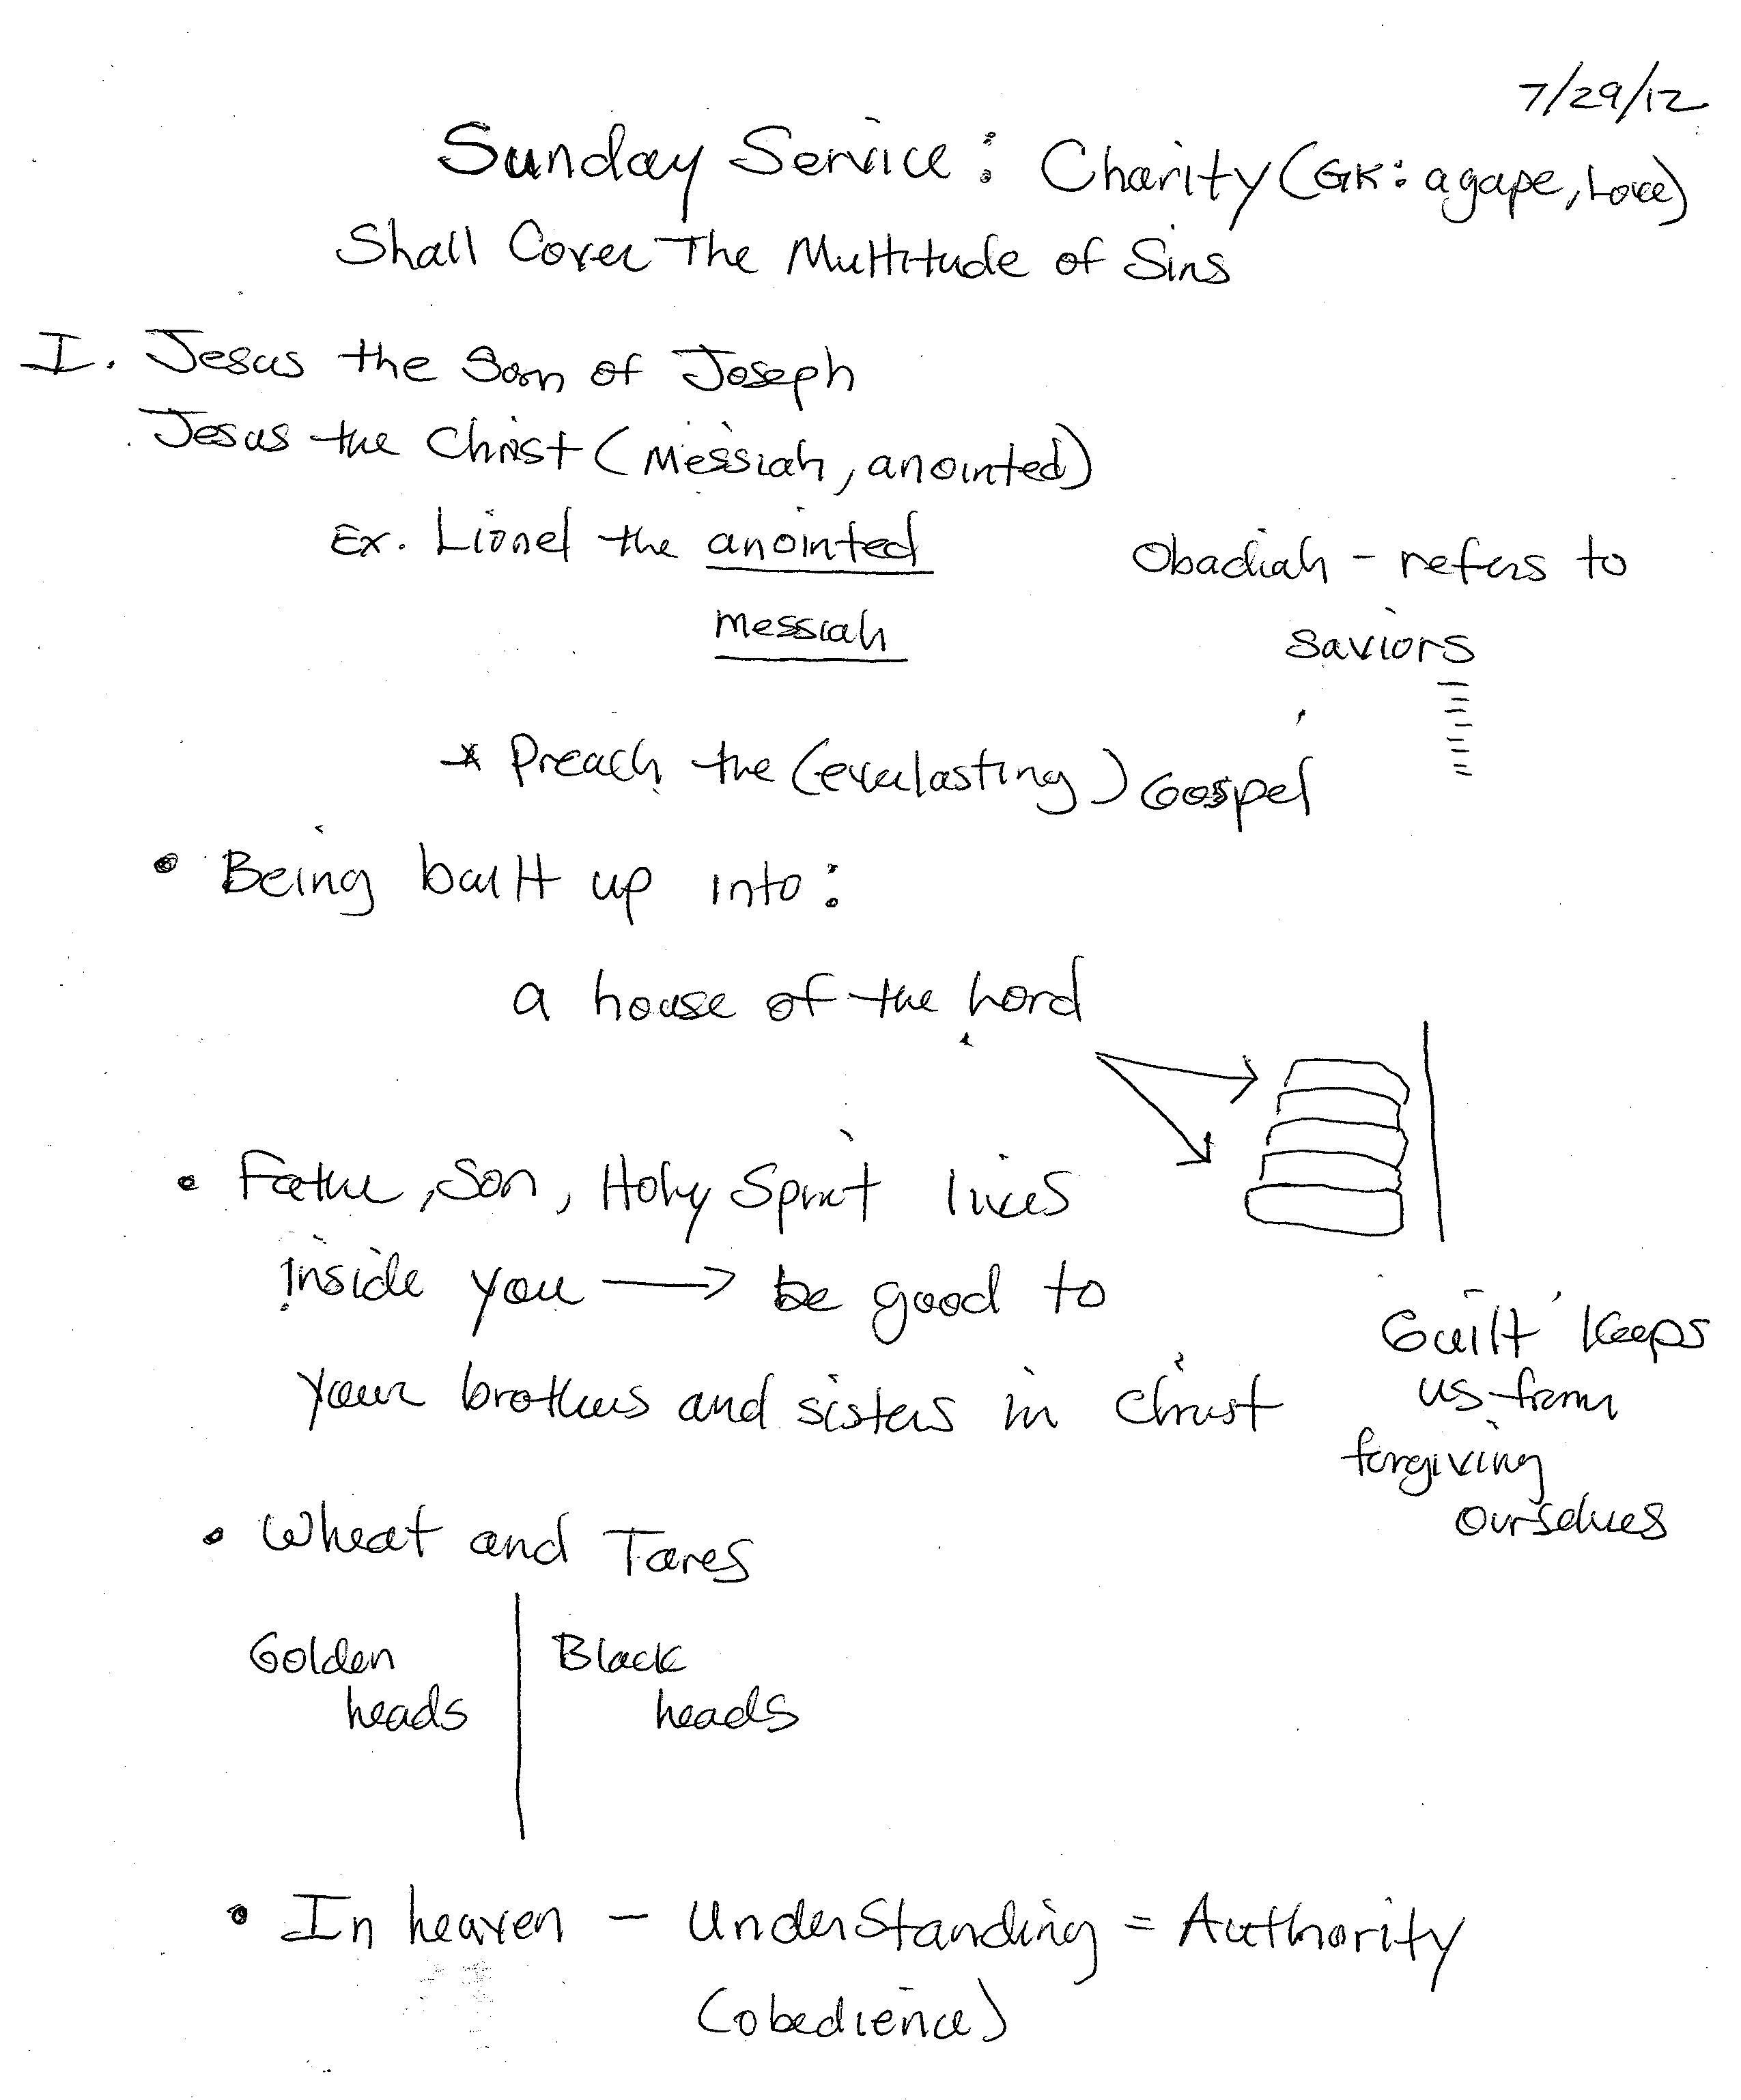 7/29/12
Sunday Service: Charity (GK: agape, Love)
Shall Cover The Multitude of Sins
I. Jesus the Son of Joseph
Jesus the Christ (Messiah, anointed)
Ex. Lionel the anointed
messiah
Obadiah - refers to
saviors
* Preach the (everlasting) Gospel
• Being built up into:
a house of the Lord
• Father, Son, Holy Spirit lives
inside you → be good to
your brothers and sisters in Christ
Guilt keeps
us from
forgiving
ourselves
• Wheat and Tares
Golden
heads
Black
heads
• In heaven - Understanding = Authority
(obedience)